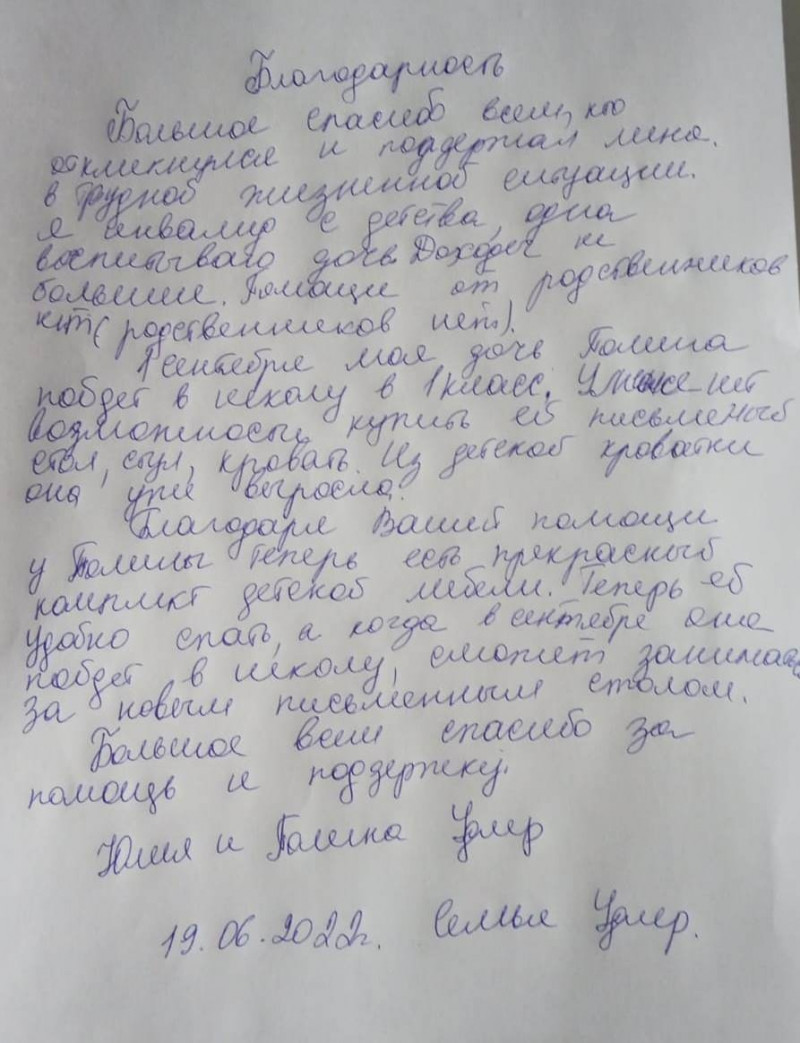 Благодарность
Большое спасибо всем, кто
откликнулся и поддержал меня.
в трудной жизненной ситуации.
Я инвалид с детства, одна
воспитываю дочь. Доходы не
большие. Помощи от родственников
нет( родственников нет).
1 сентября моя дочь Полина
пойдет в школу в 1 класс. У меня нет
возможности купить ей письменый
стол, стул, кровать. Из детской кроватки
она уже выросла.
Благодаря Вашей помощи
у Полины теперь есть прекрасный
комплект детской мебели. Теперь ей
удобно спать, а когда в сентябре она
пойдет в школу, сможет заниматься
за новым письменным столом.
Большое всем спасибо за
помощь и поддержку.
Юлия и Полина
19.06.2022г. Семья